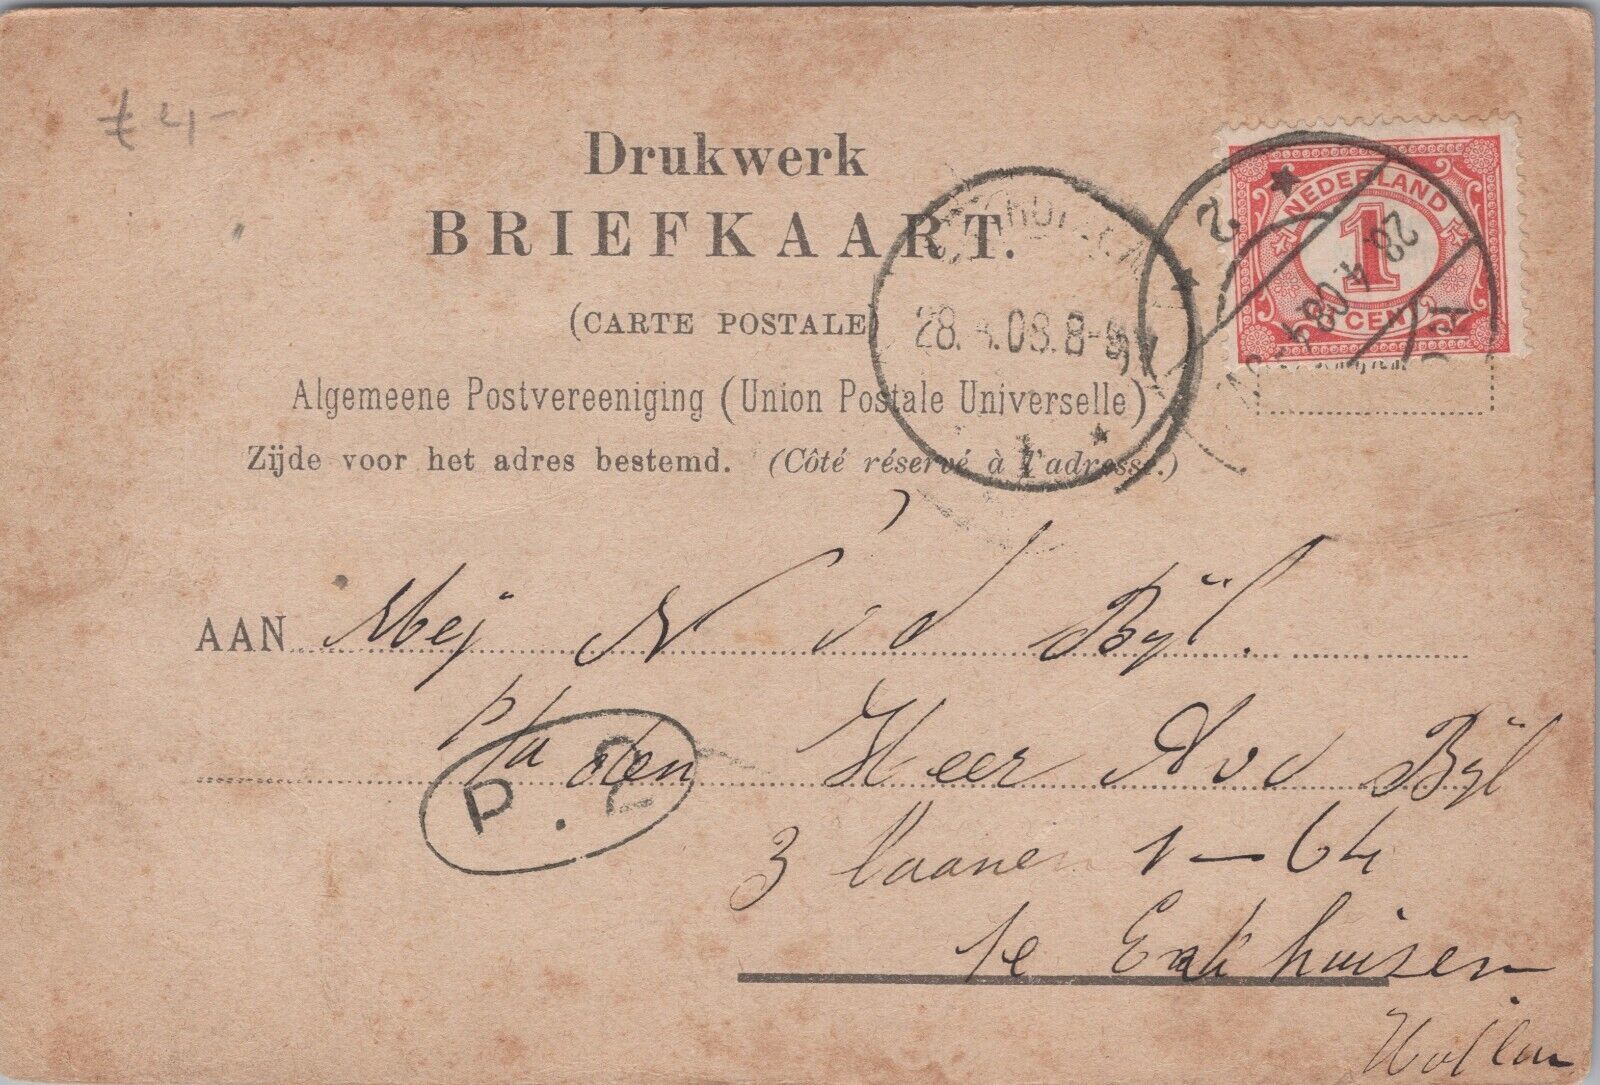 £ 4-
Drukwerk
BRIEFKAART.
(CARTE POSTALE)
Algemeene Postvereeniging (Union Postale Universelle)
Zijde voor het adres bestemd. (Côté réservé à l'adresse.)
NEDERLAND
1
CENT
28. 4.08 4-
2
28. 4.08. 8-9V
1
AAN Mej N v d Bijl.
p/a den Heer A v d Bijl
P. 2
3 laanen 1-64
te Enkhuisen